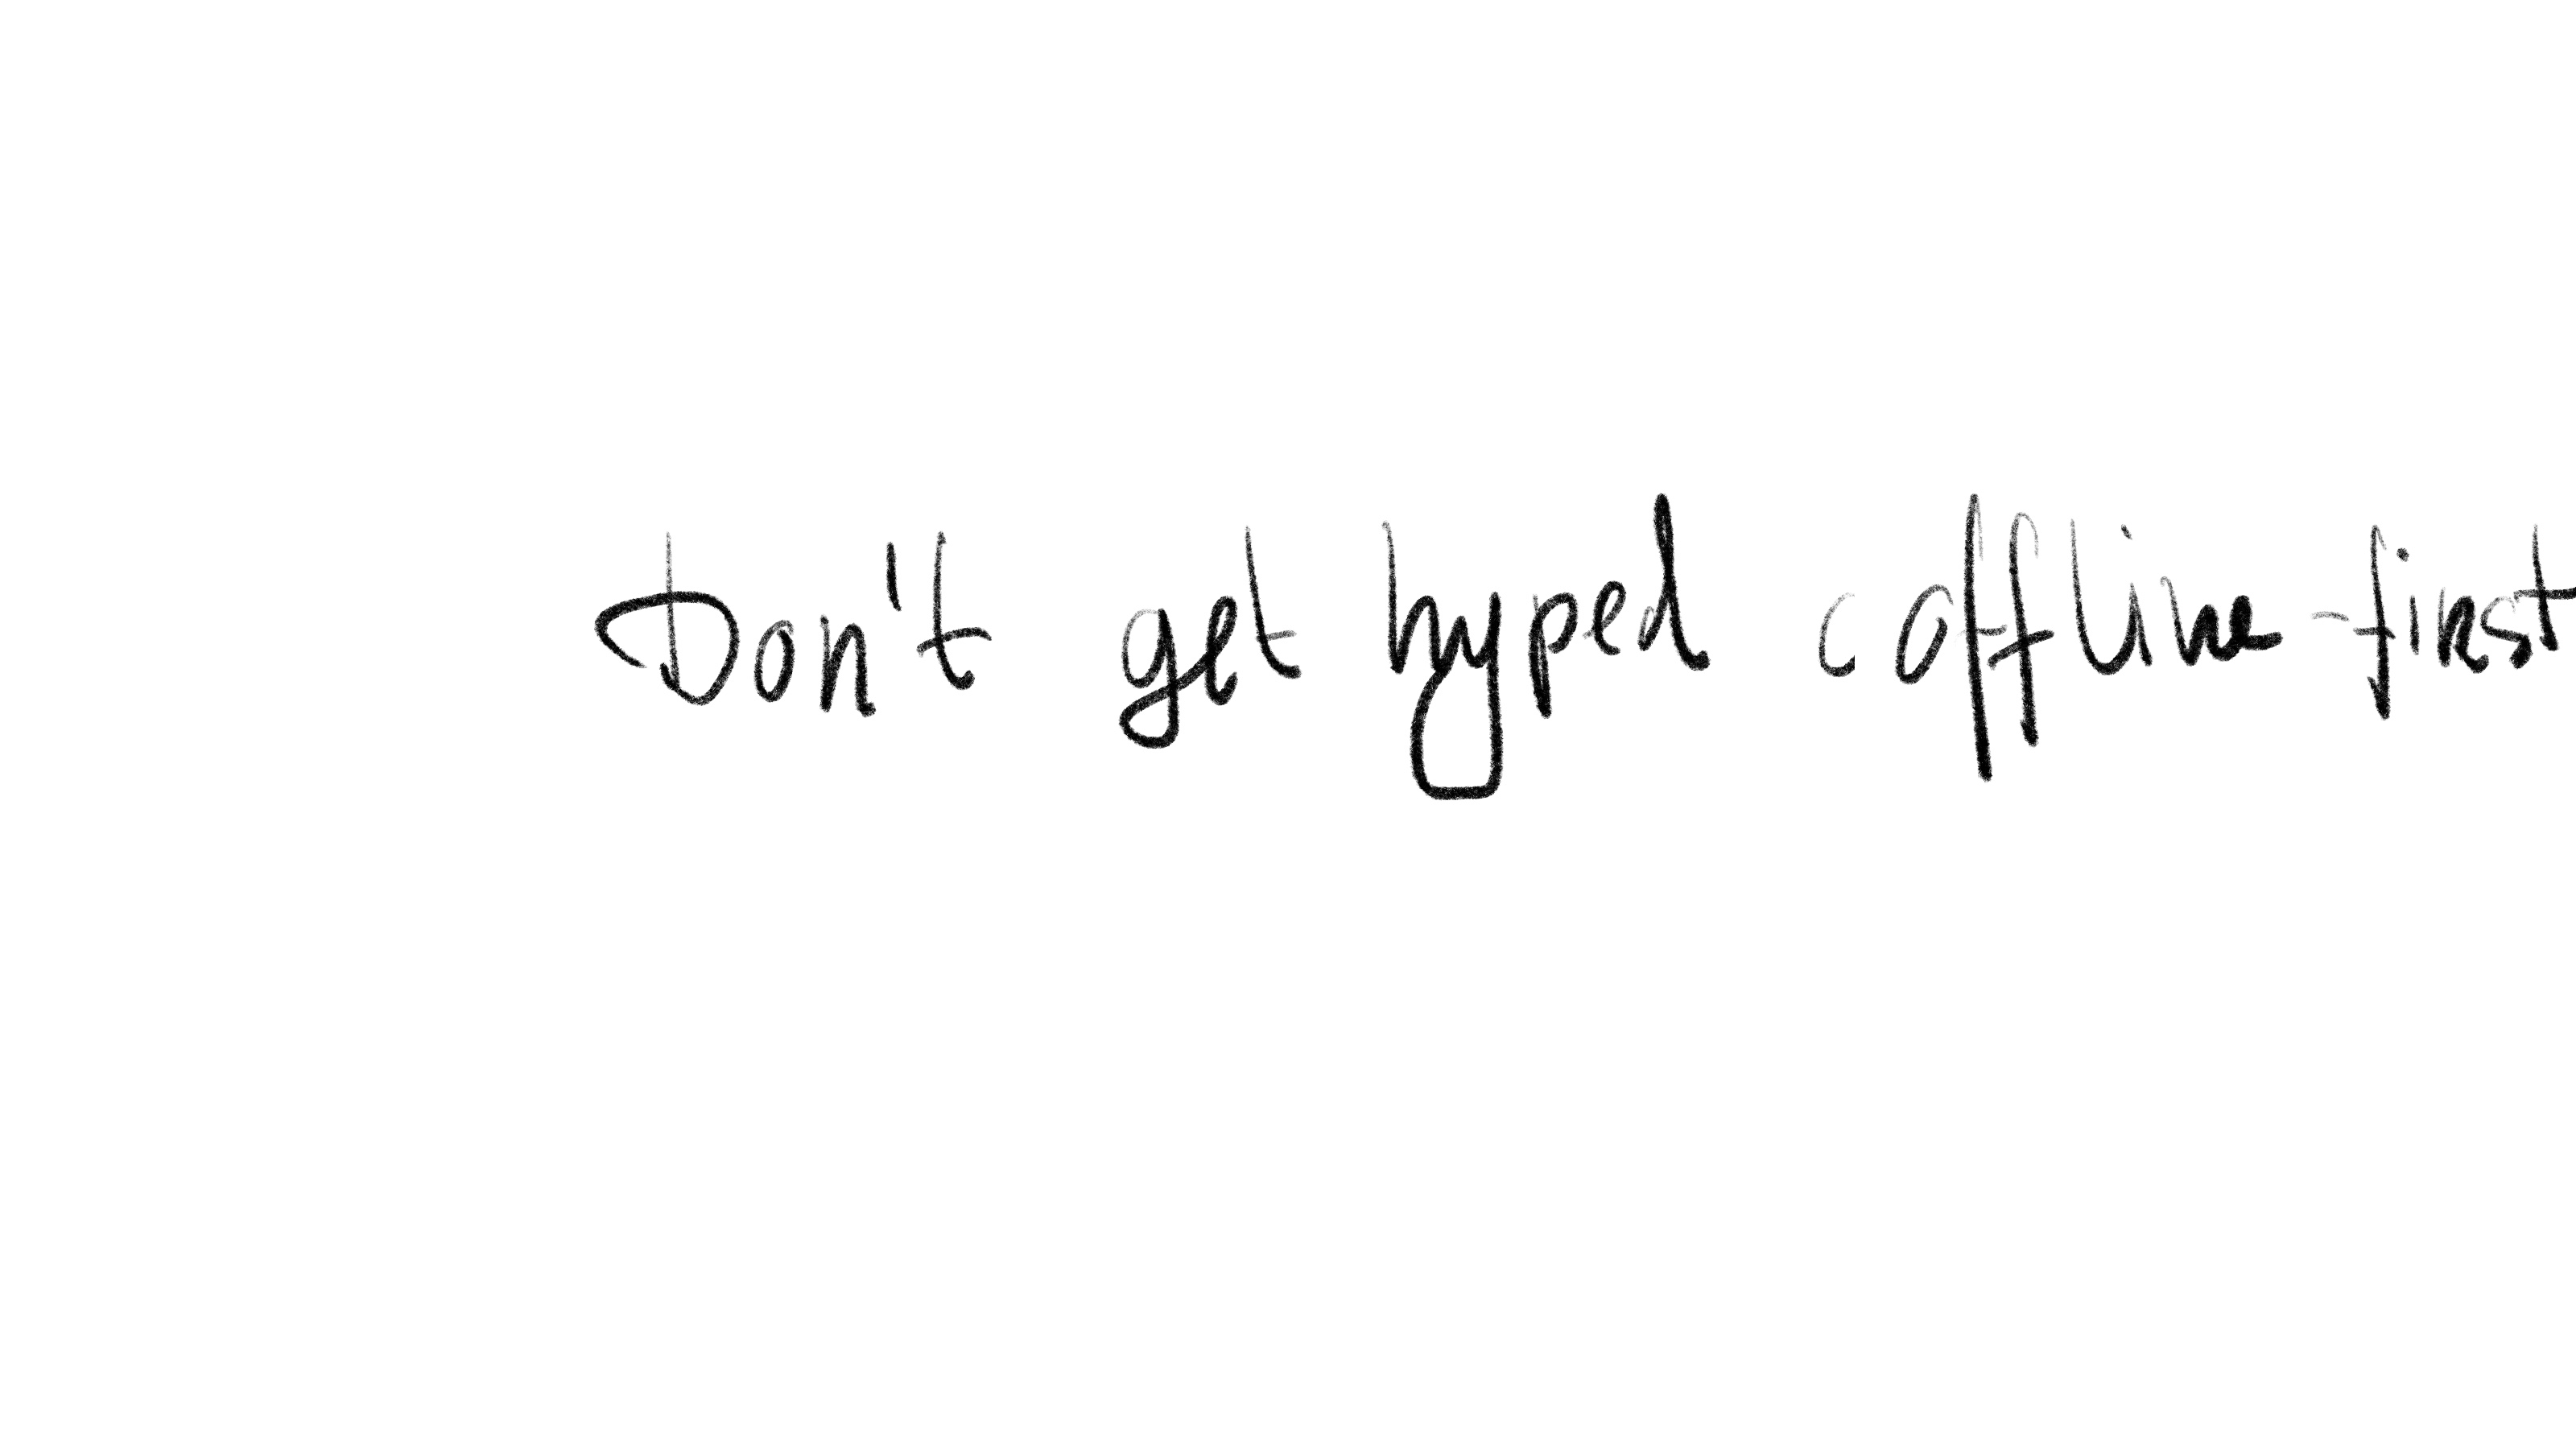 Don't get hyped c offline-first